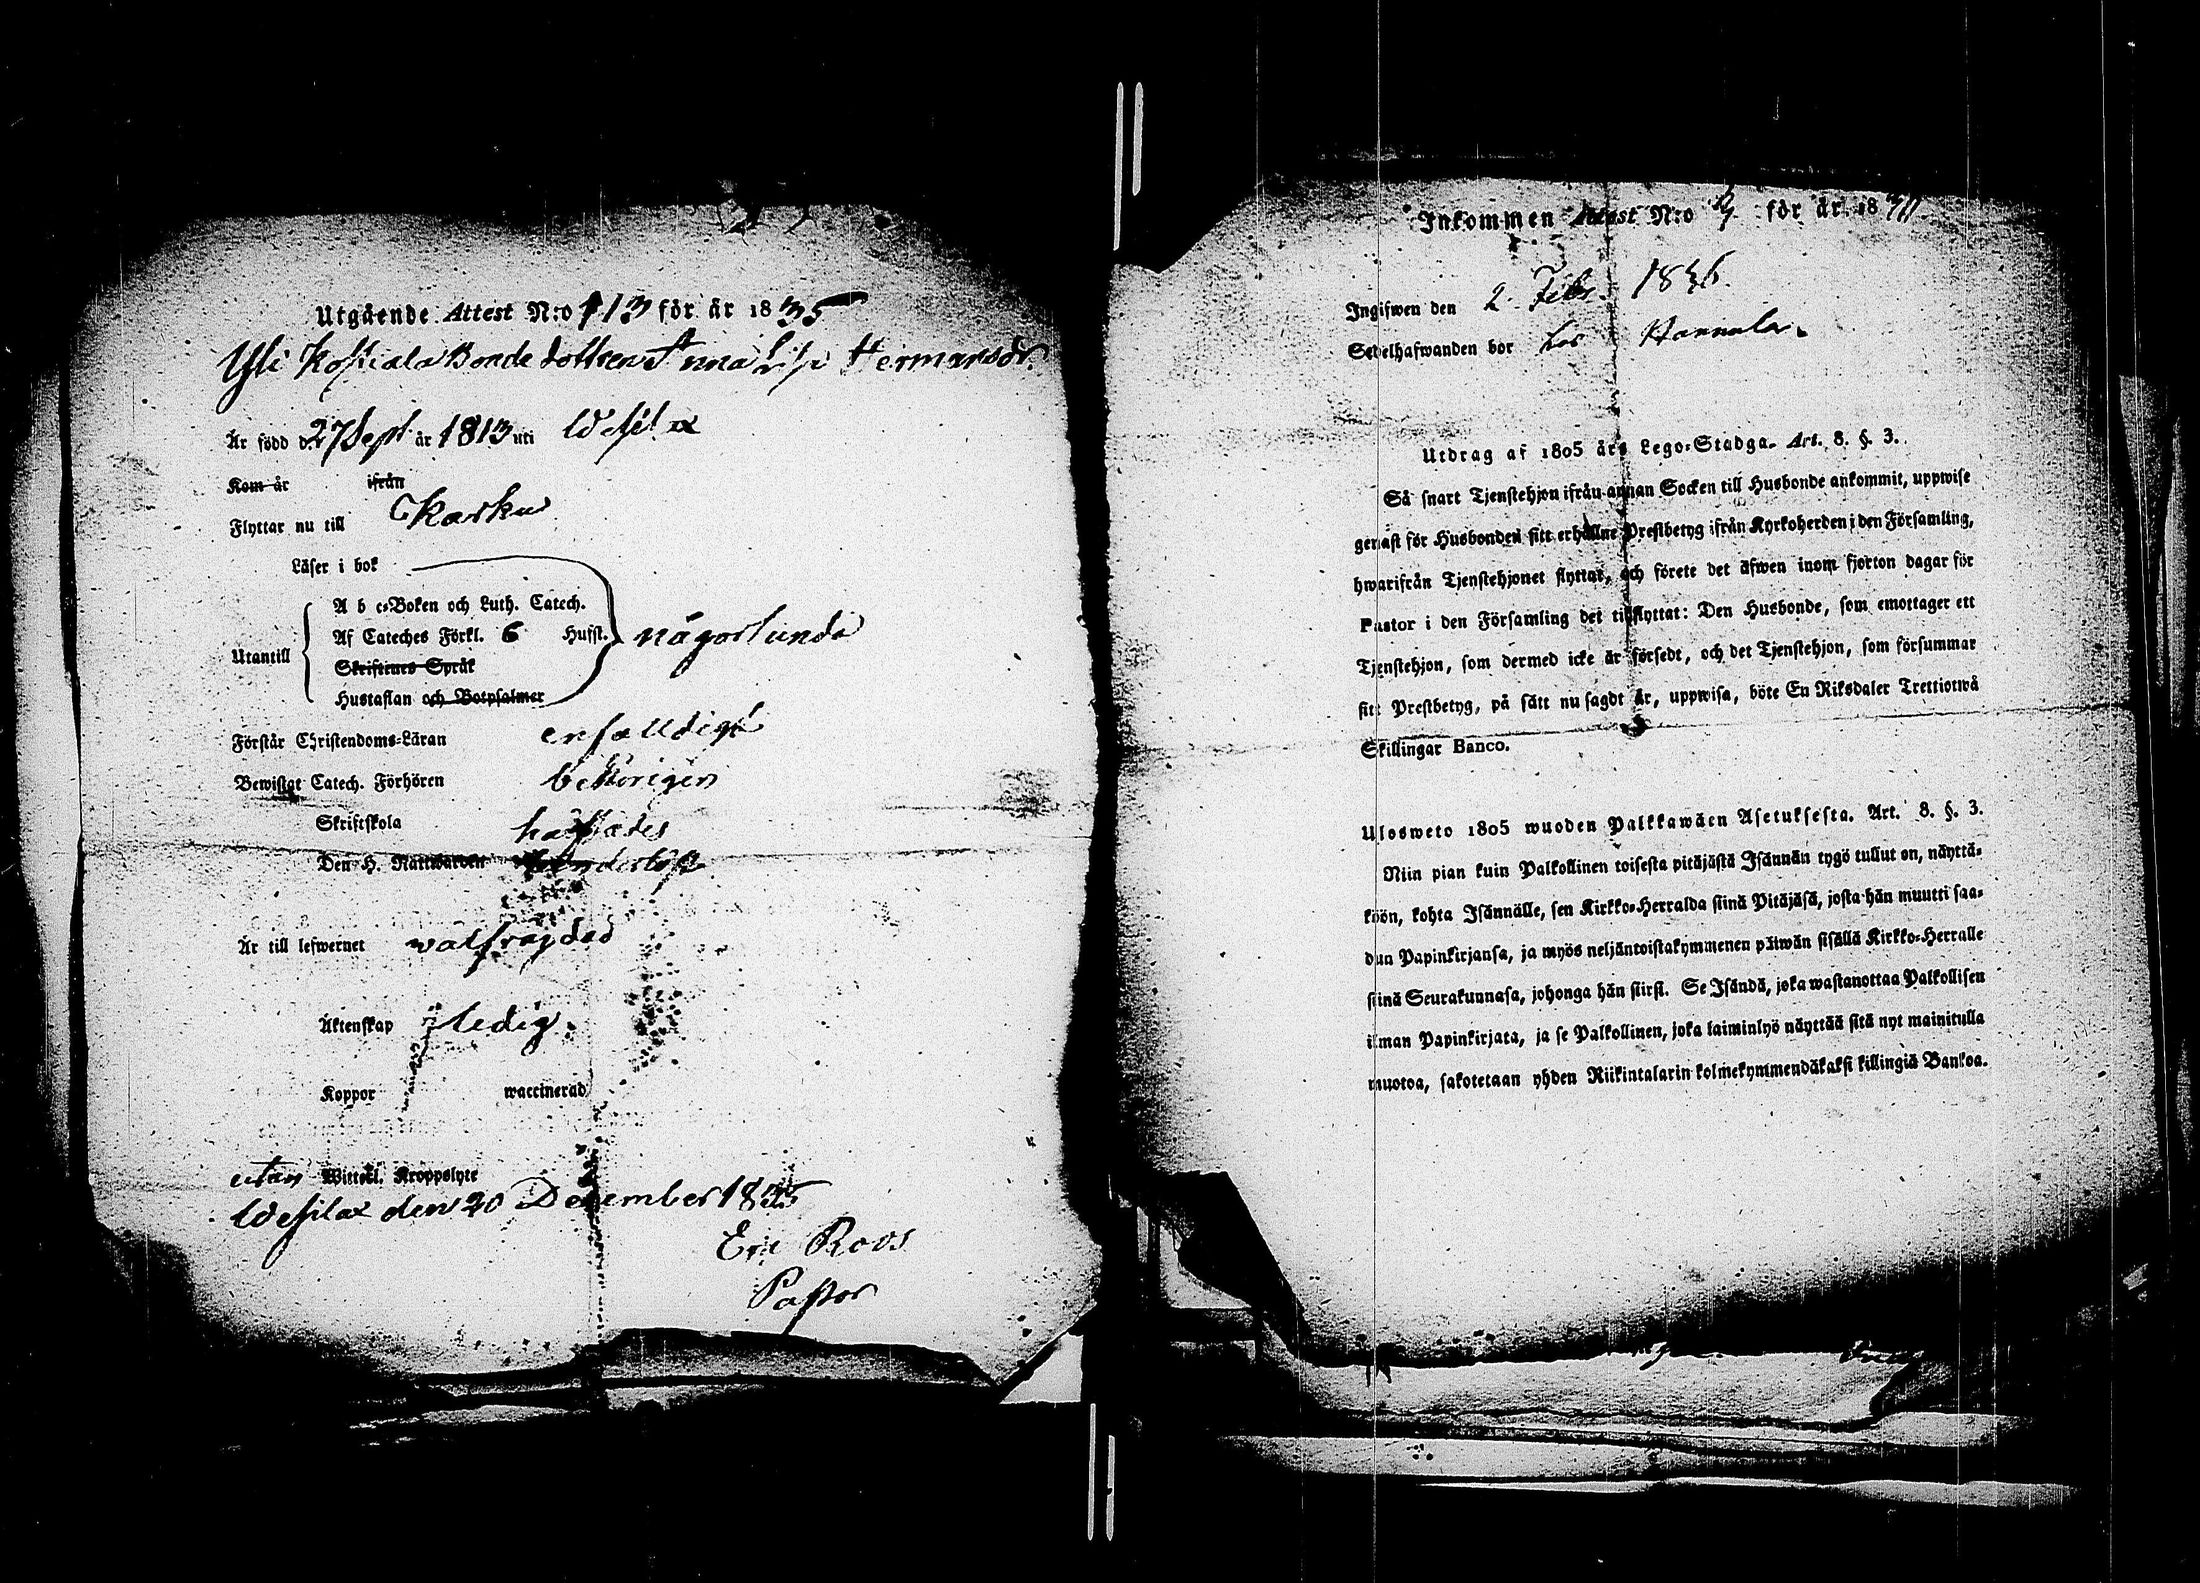 Utgående Attest N:o 113 för år 1835
Yli Koskiala Bonde dottren Anna Lisa Hermansdr.
Är född d. 27 Sept. år 1813 uti Wesilax
Kom år ifrån
Flyttar nu till Karku
Läser i bok
A b c-Boken och Luth. Catech.
Af Cateches Förkl. 6 Hufst. någorlunda
Utantill
Skriftenes Språk
Hustaflan och Botpsalmer
Förstår Christendoms-Läran enfalldigt
Bewistat Catech. Förhören behörigen
Skriftskola
Den H. Nattwarden
Är till lefwernet wälfrägdad
Äktenskap ledig
Koppor waccinerad
utan Witterl. Kroppslyte
Wesilax den 20 December 1835
Eric Roos
Pastor
Inkommen Attest N:o för år 18
Ingifwen den 2 Febr. 1836.
Sedelhafwanden bor hos Hannula.
Utdrag af 1805 års Lego-Stadga. Art. 8. §. 3.
Så snart Tjenstehjon ifrån annan Socken till Husbonde ankommit, uppwise
genast för Husbonden sitt erhållne Prestbetyg ifrån Kyrkoherden i den Församling,
hwarifrån Tjenstehjonet flyttat, och förete det äfwen inom fjorton dagar för
Pastor i den Församling det tillflyttat: Den Husbonde, som emottager ett
Tjenstehjon, som dermed icke är försedt, och det Tjenstehjon, som försummar
sitt Prestbetyg, på sätt nu sagdt är, uppwisa, böte En Riksdaler Trettiotwå
Skillingar Banco.
Ulosweto 1805 wuoden Palkkawäen Asetuksesta. Art. 8. §. 3.
Niin pian kuin Palkollinen toisesta pitäjästä Isännän tygö tullut on, näyttä-
köön, kohta Isännälle, sen Kirkko-Herralda siinä Pitäjäsä, josta hän muutti saa-
dun Papinkirjansa, ja myös neljäntoistakymmenen päiwän sisällä Kirkko-Herralle
siinä Seurakunnasa, johonga hän siirsi. Se Isändä, joka wastanottaa Palkollisen
ilman Papinkirjata, ja se Palkollinen, joka laiminlyö näyttää sitä nyt mainitulla
muotoa, sakotetaan yhden Riikintalarin kolmekymmendäkaksi killingiä Bankoa.